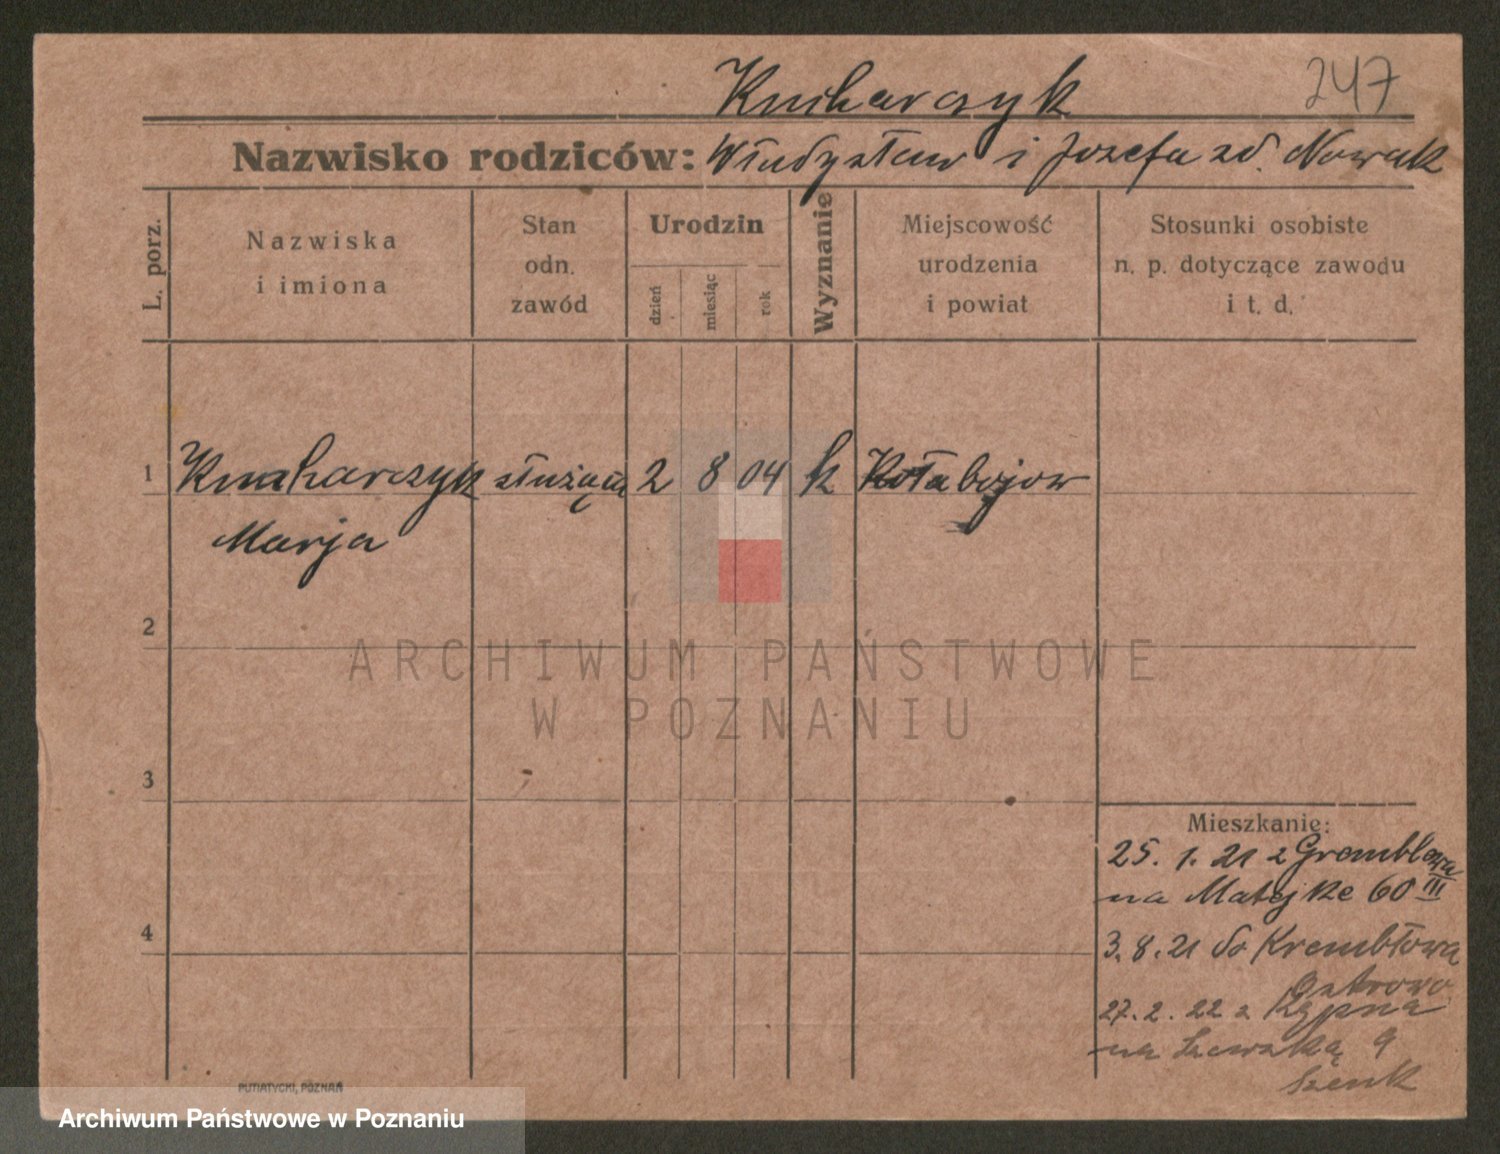 Kucharczyk
247
Nazwisko rodziców: Władysław i Jozefa zd. Nowak
L. porz.
Nazwiska
i imiona
Stan
odn.
zawód
Urodzin
dzień
miesiąc
rok
Wyznanie
Miejscowość
urodzenia
i powiat
Stosunki osobiste
n. p. dotyczące zawodu
i t. d.
1 Kucharczyk służąca 2 8 04 k
Marja
2
3
4
Mieszkanie:
25. 1. 21 z
na Matejke 60 III
3. 8. 21 do
Ostrowo
27. 2. 22 z Kępna
na Szewską 9
Szenk
PUTIATYCKI, POZNAŃ
ARCHIWUM PAŃSTWOWE
W POZNANIU
Archiwum Państwowe w Poznaniu